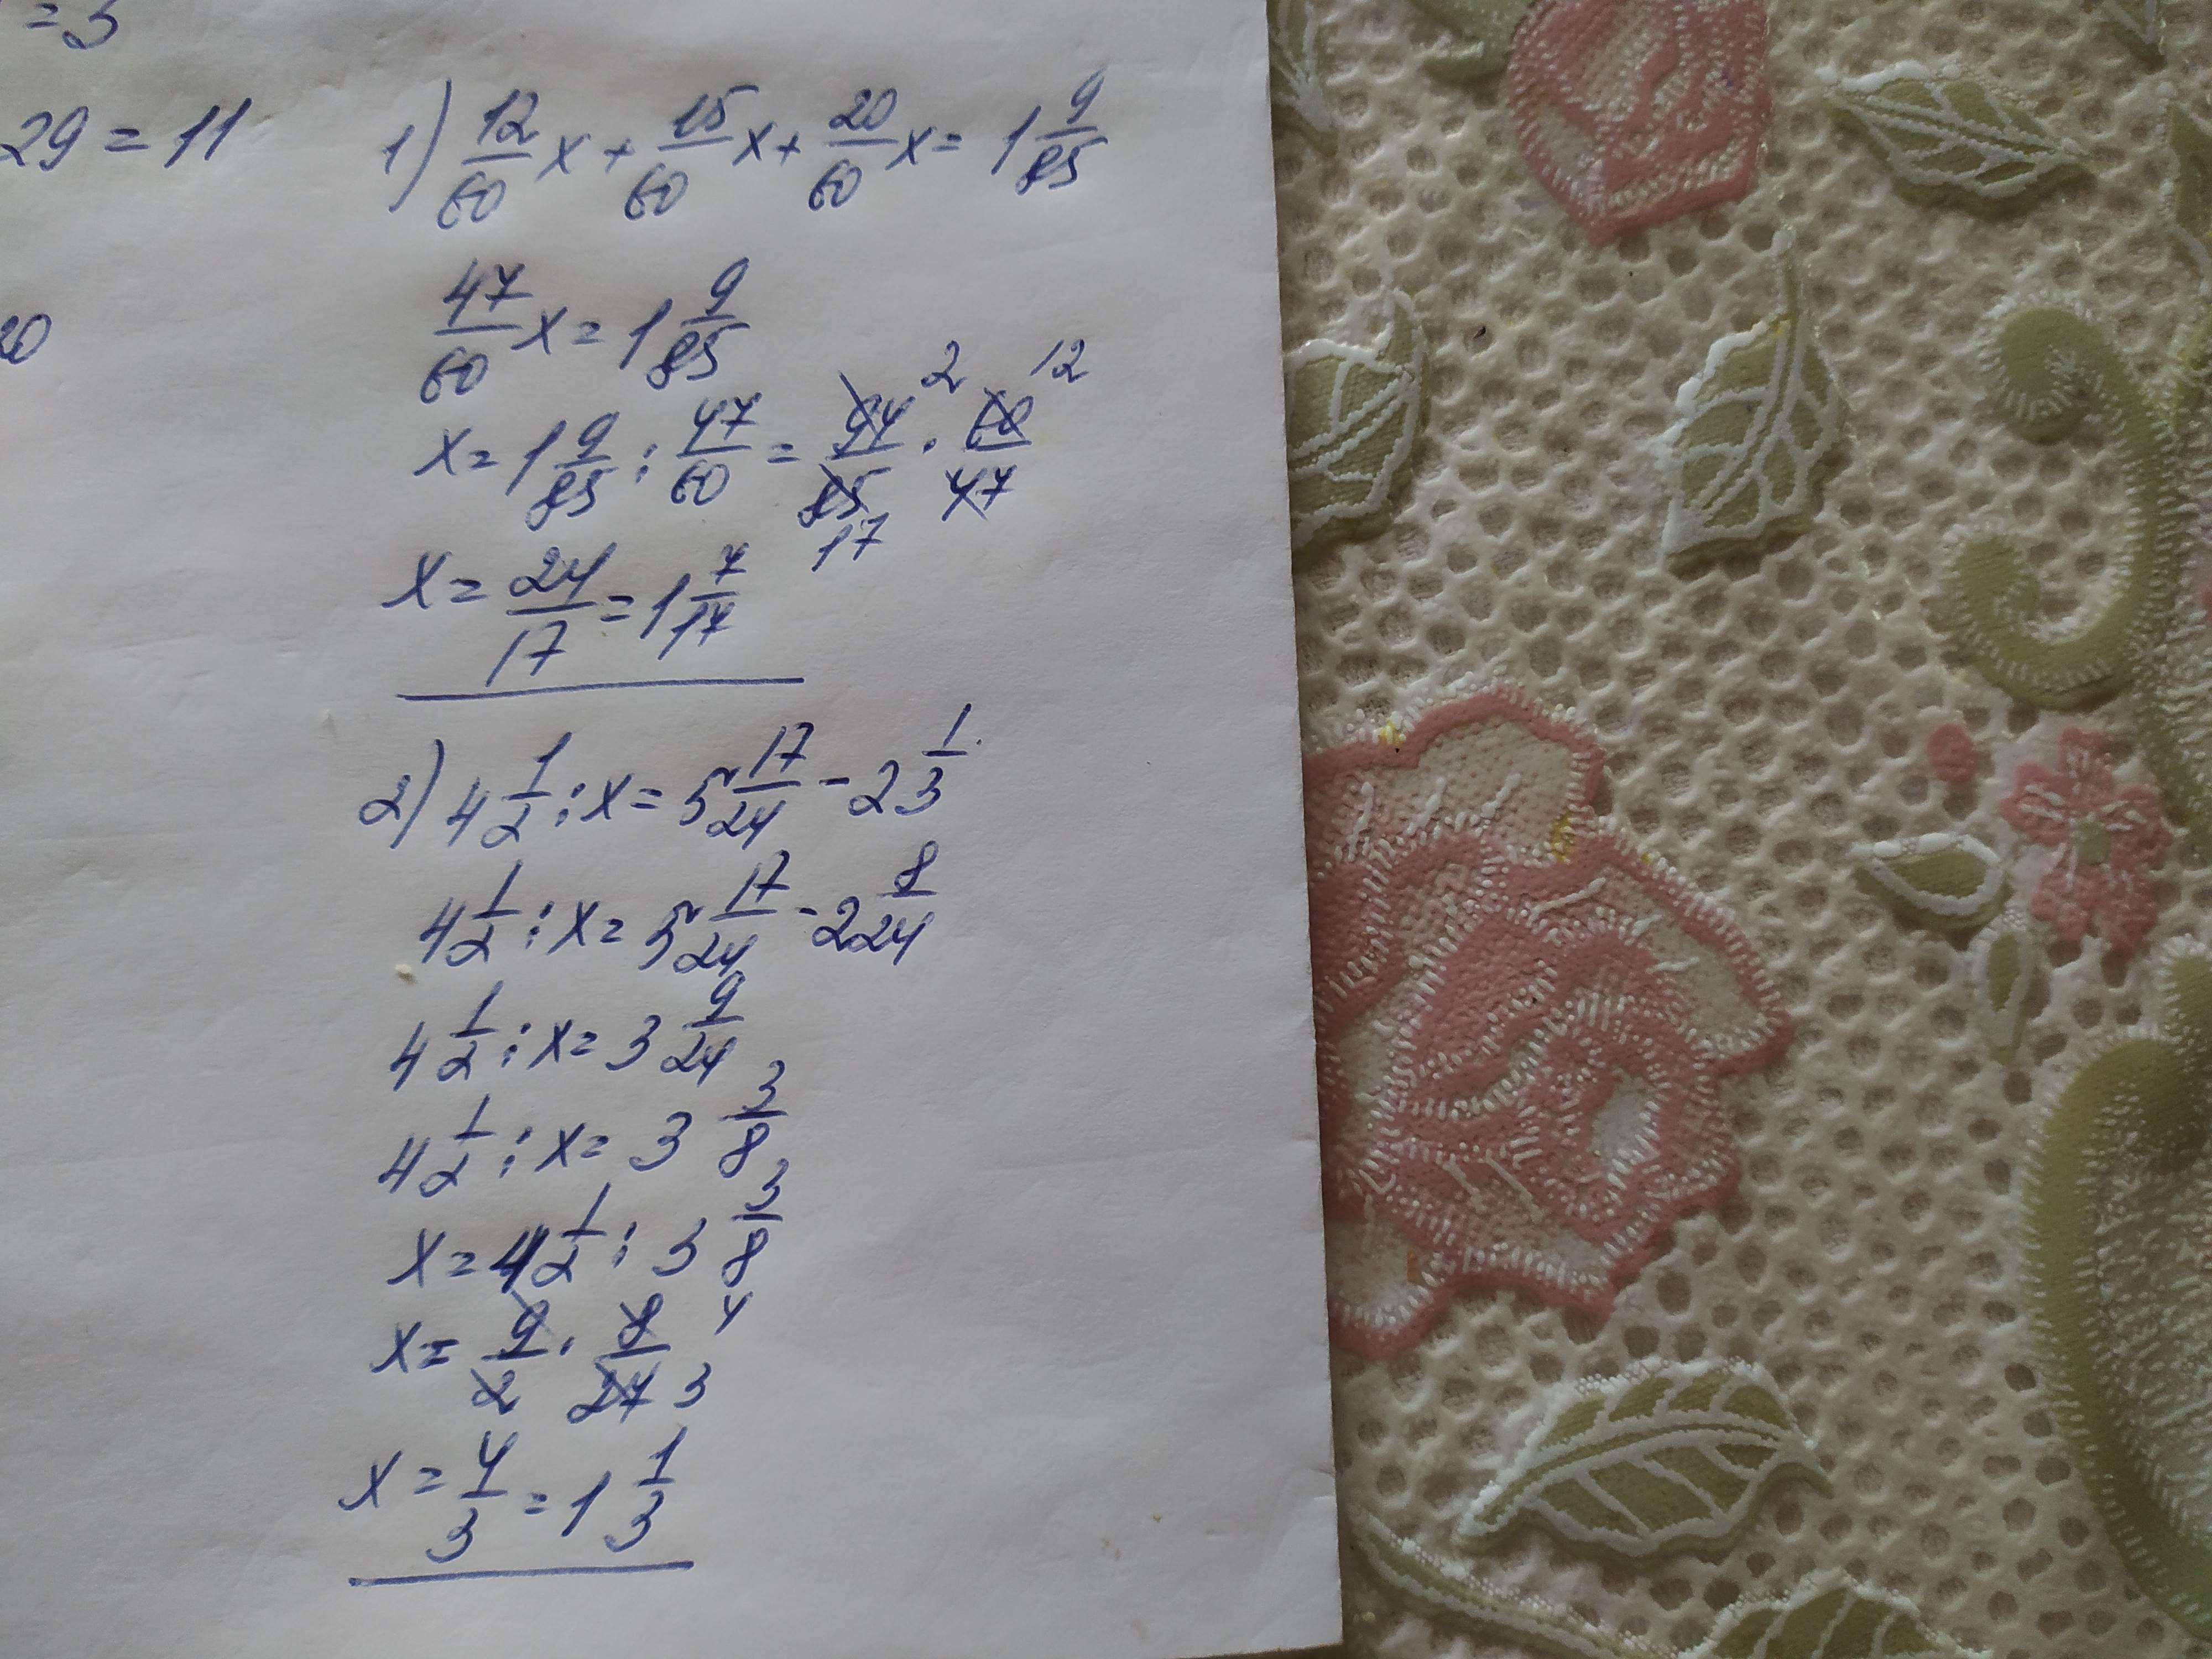 =3
29 = 11
20
1) 12/60 x + 15/60 x + 20/60 x = 1 9/85
47/60 x = 1 9/85
x = 1 9/85 : 47/60 = 94/85 · 60/47 2 12 17
x = 24/17 = 1 7/17
2) 4 1/2 : x = 5 17/24 - 2 1/3
4 1/2 : x = 5 17/24 - 2 8/24
4 1/2 : x = 3 9/24
4 1/2 : x = 3 3/8
x = 4 1/2 : 3 3/8
x = 9/2 · 8/27 4 3
x = 4/3 = 1 1/3